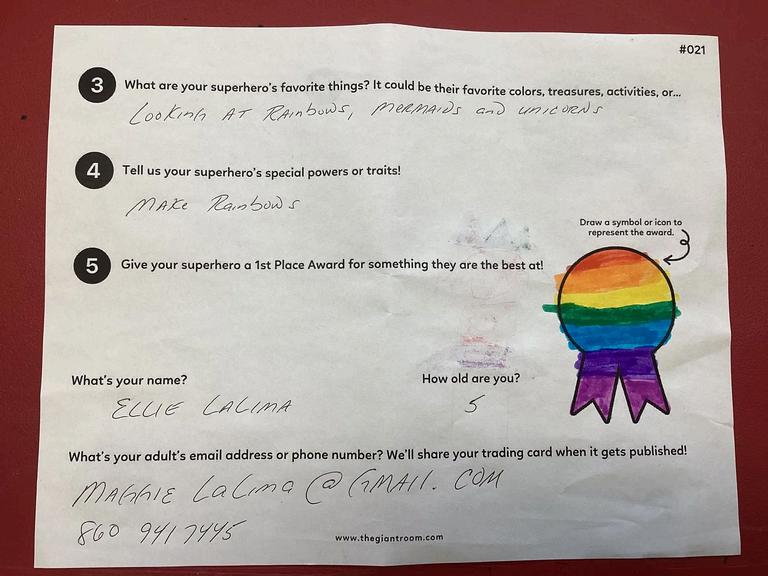 #021
3 What are your superhero's favorite things? It could be their favorite colors, treasures, activities, or...
Looking AT Rainbows, MERMAIDS and UNICORNS
4 Tell us your superhero's special powers or traits!
MAKE Rainbows
Draw a symbol or icon to
represent the award.
5 Give your superhero a 1st Place Award for something they are the best at!
What's your name? How old are you?
ELLIE LALIMA 5
What's your adult's email address or phone number? We'll share your trading card when it gets published!
MAGGIE LaLima @ GMAIL. COM
860 941 7445
www.thegiantroom.com